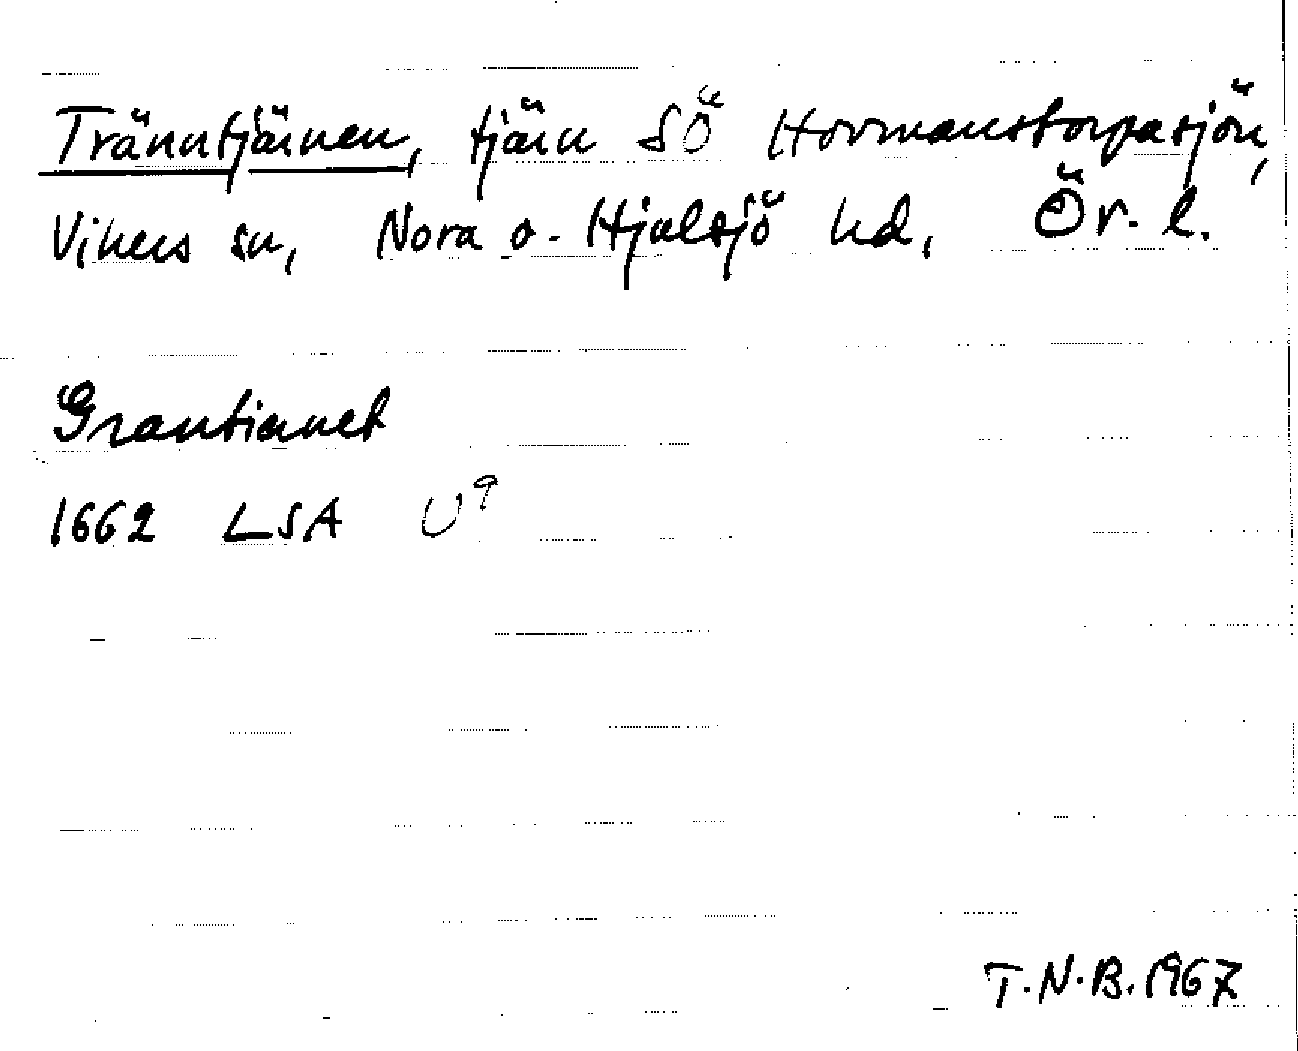 Tränntjärnen, tjärn SÖ Hormanstorpasjön,
Vikers sn, Nora o. Hjulsjö hd, Ör. l.
Grantiänet
1662 LSA U⁹
T.N.B. 1967